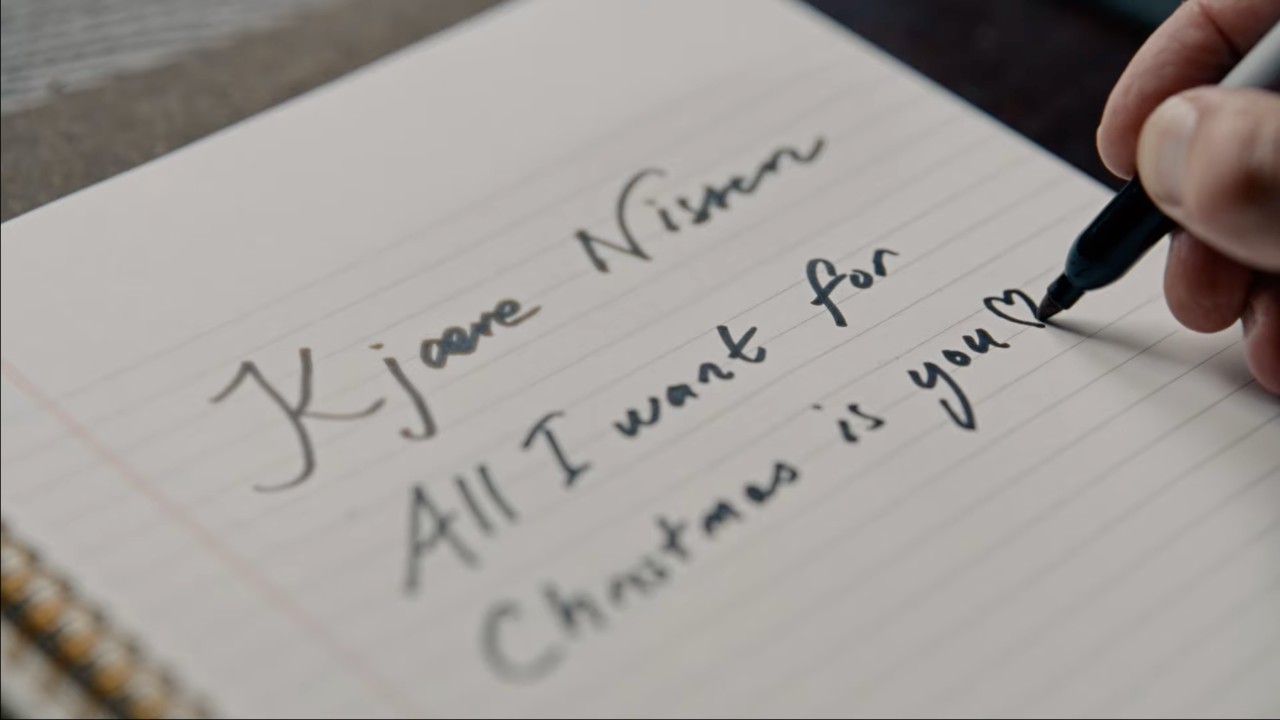 Kjaere Nissen
All I want for
Christmas is you♡